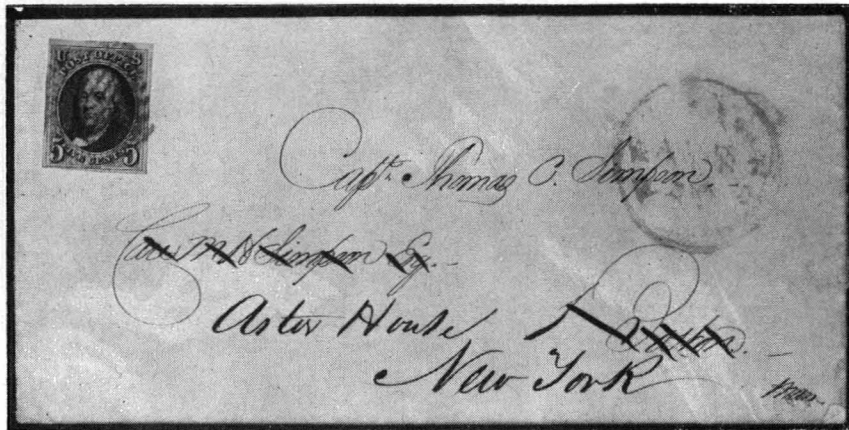 POST OFFICE
5 5
FIVE CENTS
Capt. Thomas C. Simpson.
Care M H Simpson Esq.
Astor House Boston.
New York
Mass.